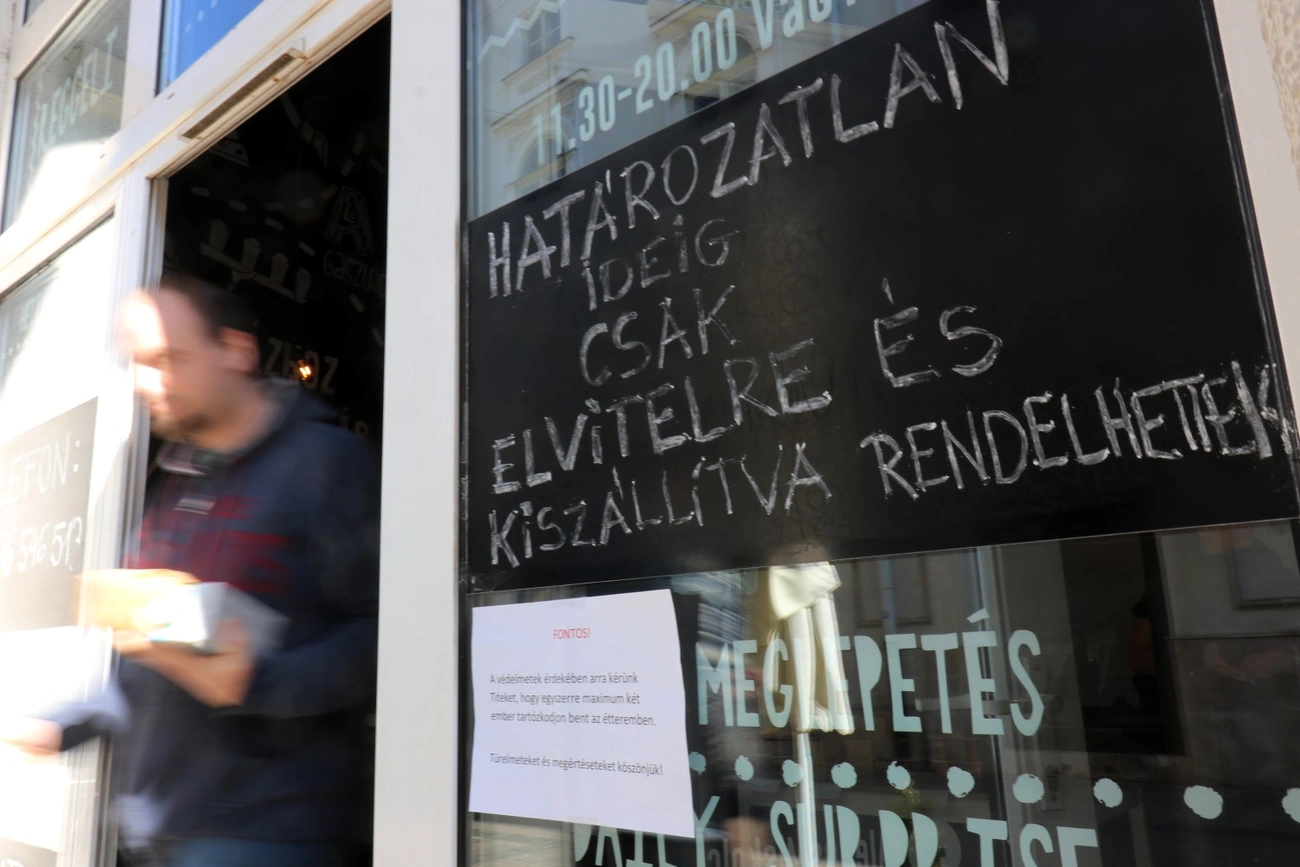 11.30-20.00 vagy
HATÁROZATLAN
IDEIG
CSAK
ELVITELRE ÉS
KISZÁLLÍTVA RENDELHETTEK
FONTOS!
A védelmetek érdekében arra kérünk
Titeket, hogy egyszerre maximum két
ember tartózkodjon bent az étteremben.
Türelmeteket és megértéseteket köszönjük!
MEGLEPETÉS
DAILY SURPRISE